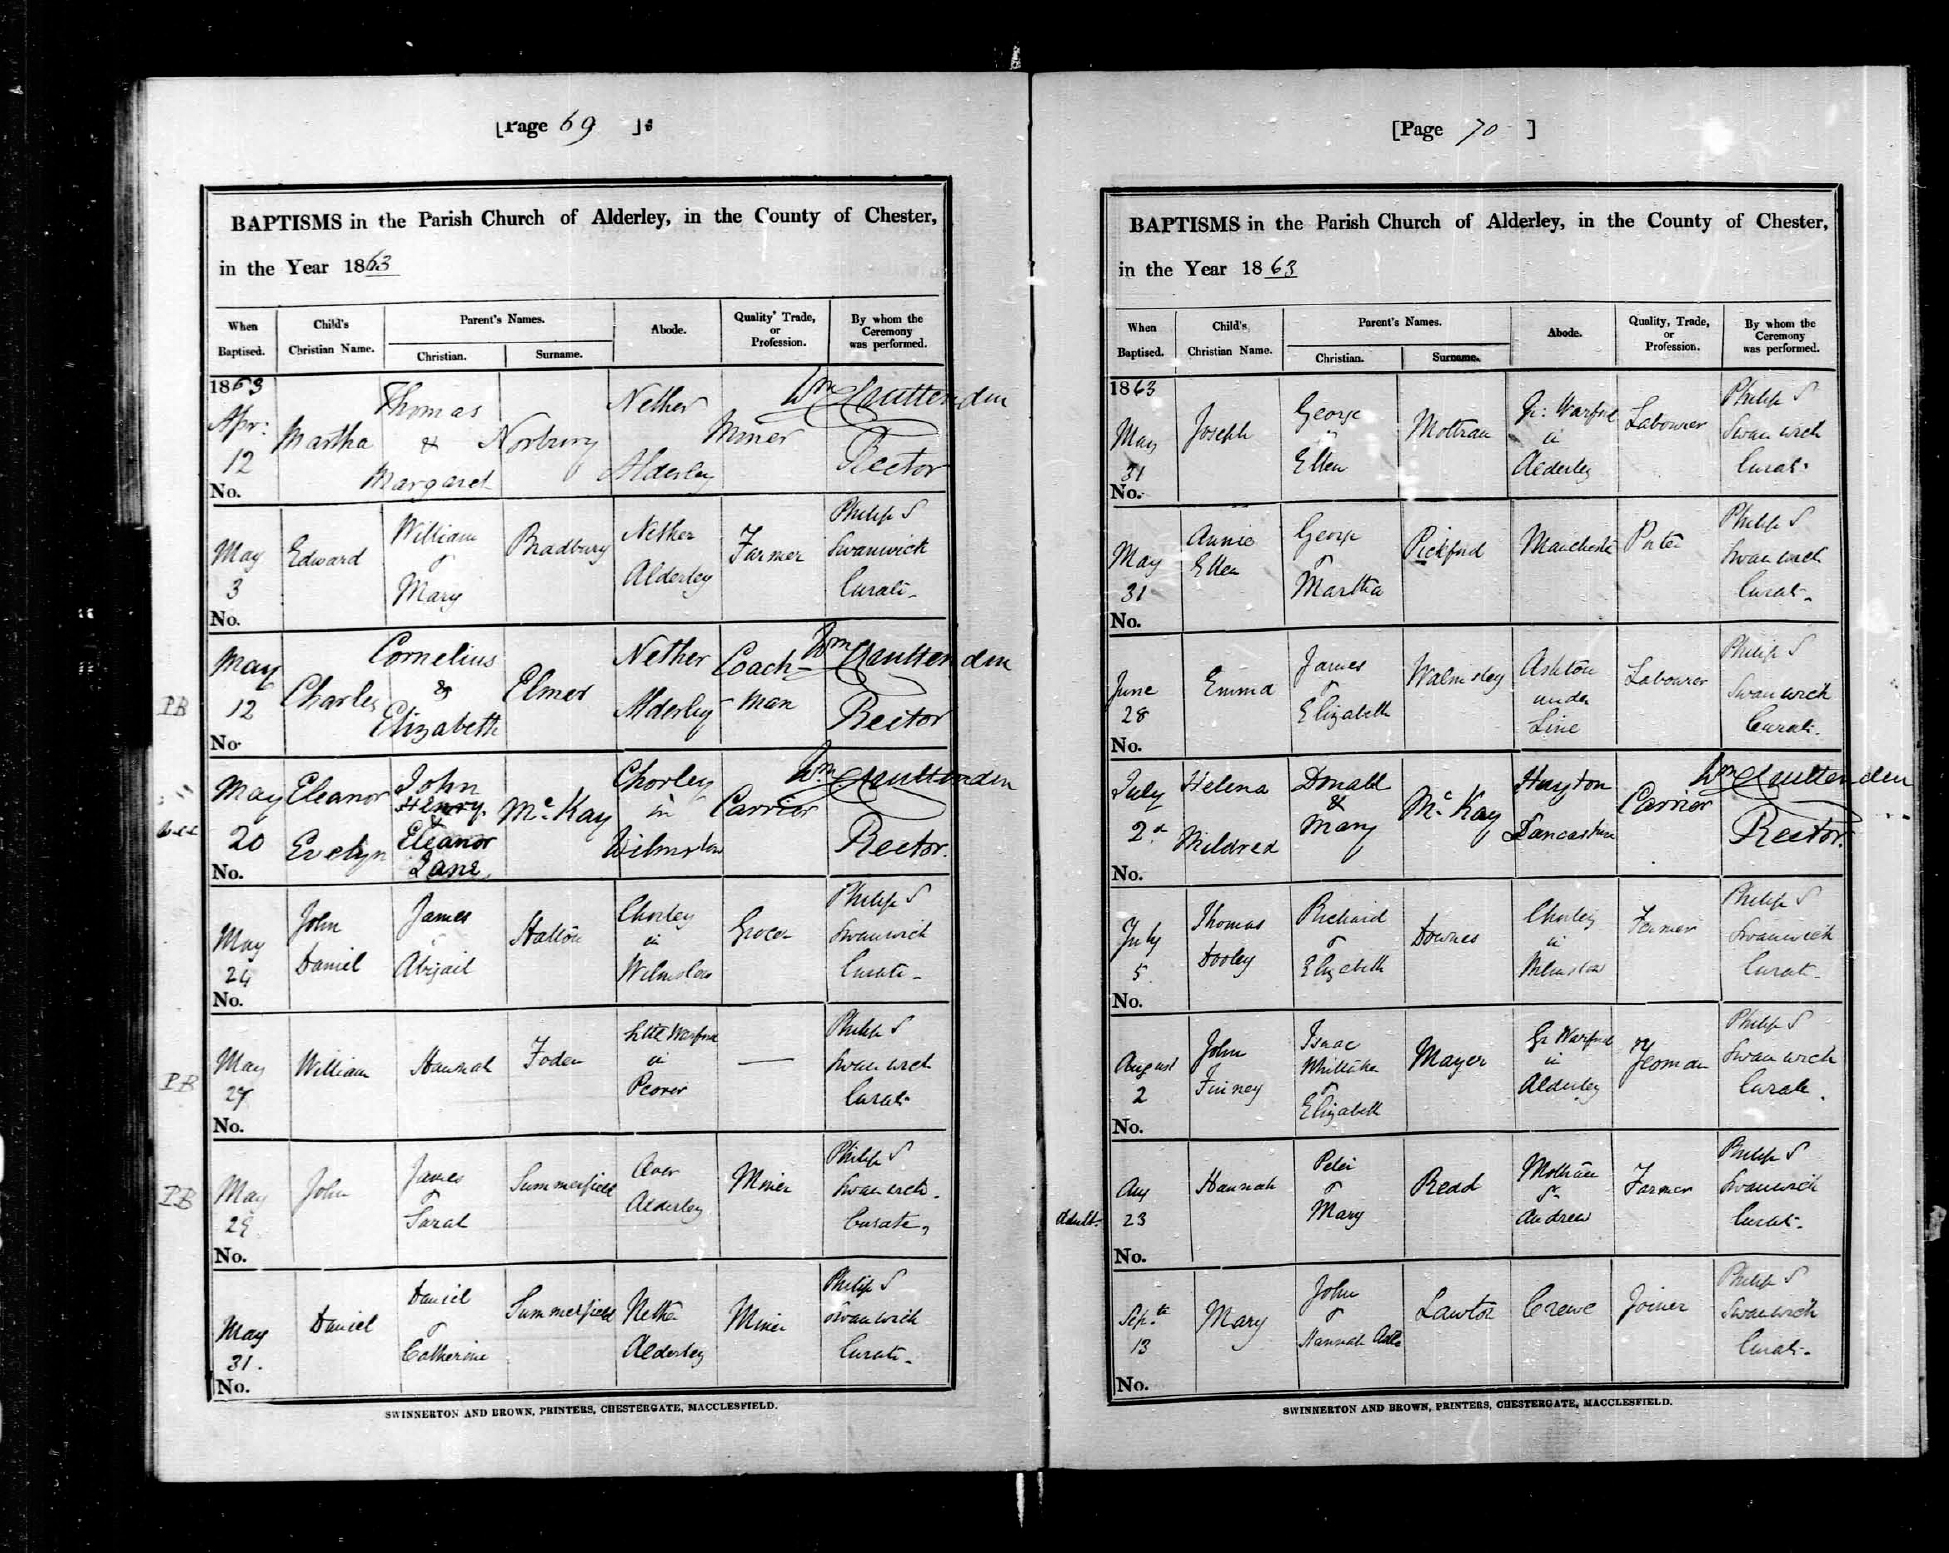 [Page 69 ]
BAPTISMS in the Parish Church of Alderley, in the County of Chester,
in the Year 1863
When Baptised. Child's Christian Name. Parent's Names. Christian. Surname. Abode. Quality, Trade, or Profession. By whom the Ceremony was performed.
1863 Apr: 12 Martha Thomas & Margaret Norbury Nether Alderley Miner Wm Rector
No.
May 3 Edward William & Mary Bradbury Nether Alderley Farmer Philip S Swanwick Curate
No.
PB May 12 Charles Cornelius & Elizabeth Elmer Nether Alderley Coach-man Wm Rector
No.
May 20 Eleanor Evelyn John Henry & Eleanor Jane McKay Chorley in Wilmslow Carrier Wm Rector.
No.
May 24 John Daniel James & Abigail Hatton Chorley in Wilmslow Grocer Philip S Swanwick Curate
No.
PB May 27 William Hannah Foden Little Warford in Peover — Philip S Swanwick Curate
No.
PB May 29 John James & Sarah Summerfield Over Alderley Miner Philip S Swanwick Curate
No.
May 31. Daniel Daniel & Catherine Summerfield Nether Alderley Miner Philip S Swanwick Curate
No.
SWINNERTON AND BROWN, PRINTERS, CHESTERGATE, MACCLESFIELD.
[Page 70 ]
BAPTISMS in the Parish Church of Alderley, in the County of Chester,
in the Year 1863
When Baptised. Child's Christian Name. Parent's Names. Christian. Surname. Abode. Quality, Trade, or Profession. By whom the Ceremony was performed.
1863 May 31 Joseph George & Ellen Mottram Gr: Warford in Alderley Labourer Philip S Swanwick Curate
No.
May 31 Annie Ellen George & Martha Pickford Manchester Porter Philip S Swanwick Curate
No.
June 28 Emma James & Elizabeth Walmsley Ashton under Line Labourer Philip S Swanwick Curate.
No.
July 2d Helena Mildred Donald & Mary McKay Huyton Lancashire Carrier Wm Rector.
No.
July 5 Thomas Dooley Richard & Elizabeth Downes Chorley in Wilmslow Farmer Philip S Swanwick Curate
No.
August 2 John Finney Isaac Whittaker & Elizabeth Mayer Gr Warford in Alderley Yeoman Philip S Swanwick Curate.
No.
Adult. Aug 23 Hannah Peter & Mary Read Mottram St Andrew Farmer Philip S Swanwick Curate
No.
Sept. 13 Mary John & Hannah Lawton Crewe Joiner Philip S Swanwick Curate.
No.
SWINNERTON AND BROWN, PRINTERS, CHESTERGATE, MACCLESFIELD.